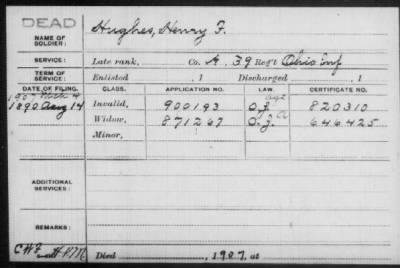 DEAD
NAME OF SOLDIER: Hughes, Henry F.
SERVICE: Late rank, Co. A, 39 Reg't Ohio Inf
TERM OF SERVICE: Enlisted , 1 Discharged , 1
DATE OF FILING. CLASS. APPLICATION NO. LAW. CERTIFICATE NO.
1890 Aug 14 Invalid, 900193 O.L. 820310
Widow, 871267 O.L. 646425
Minor,
ADDITIONAL SERVICES:
REMARKS:
Died , 1907, at